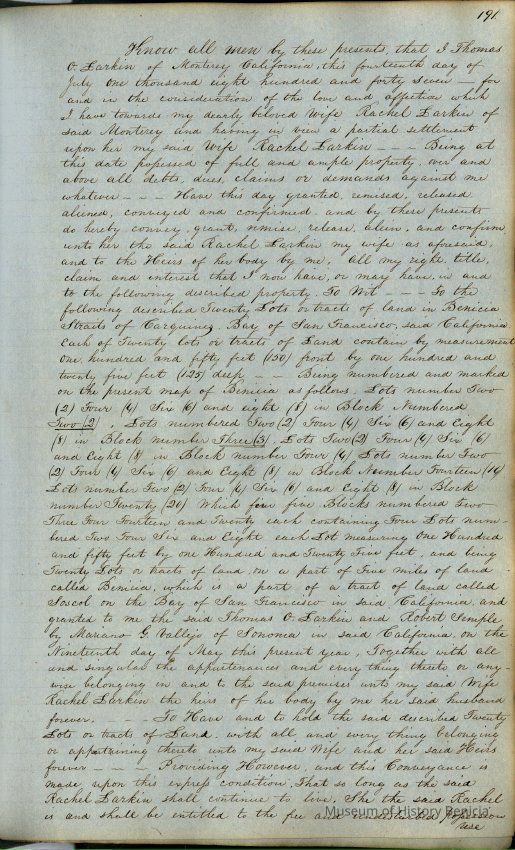 191.
Know all men by these presents, that I Thomas
O. Larkin of Monterey California, this fourteenth day of
July One thousand eight hundred and forty seven — for
and in the consideration of the love and affection which
I have towards my dearly beloved Wife Rachel Larkin of
said Monterey and having in view a partial settlement
upon her my said Wife Rachel Larkin — — — Being at
this date possessed of full and ample property, over and
above all debts, dues, claims or demands against me
whatever — — — Have this day granted, remised, released
aliened, conveyed and confirmed, and by these presents
do hereby convey, grant, remise, release, alien, and confirm
unto her the said Rachel Larkin my wife as aforesaid,
and to the Heirs of her body by me, all my right, title,
claim and interest that I now have, or may have, in and
to the following described property, To Wit — — To the
following described Twenty Lots or tracts of land in Benicia
Straits of Carquinez, Bay of San Francisco, said California
each of Twenty lots or tracts of Land contain by measurement
One hundred and fifty feet (150) front by one hundred and
twenty five feet (125) deep — — Being numbered and marked
on the present map of Benicia as follows, Lots number Two
(2) Four (4) Six (6) and eight (8) in Block Numbered
Two (2). Lots numbered Two (2) Four (4) Six (6) and Eight
(8) in Block number Three (3). Lots Two (2) Four (4) Six (6)
and Eight (8) in Block number Four (4) Lots number Two
(2) Four (4) Six (6) and Eight (8) in Block Number Fourteen (14)
Lots number Two (2) Four (4) Six (6) and Eight (8) in Block
number Twenty (20) Which five Blocks numbered Two
Three Four Fourteen and Twenty each containing Four Lots num-
bered Two Four Six and Eight each Lot measuring One Hundred
and fifty feet by One Hundred and Twenty Five feet, and being
Twenty Lots or tracts of land, on a part of Five miles of land
called Benicia, which is a part of a tract of land called
Soscol on the Bay of San Francisco in said California, and
granted to me the said Thomas O. Larkin and Robert Semple
by Mariano G. Vallejo of Sonoma in said California, on the
Nineteenth day of May this present year, Together with all
and singular the appurtenances and every thing thereto or any-
wise belonging in and to the said premises unto my said Wife
Rachel Larkin the heirs of her body by me her said husband
forever. — — To Have and to hold the said described Twenty
Lots or tracts of Land. with all and every thing belonging
or appertaining thereto unto my said Wife and her said Heirs
forever — — Providing However, and this Conveyance is
made upon this express condition, That so long as the said
Rachel Larkin shall continue to live, She the said Rachel
is and shall be entitled to the fee and undisturbed possession
use
Museum of History Benicia